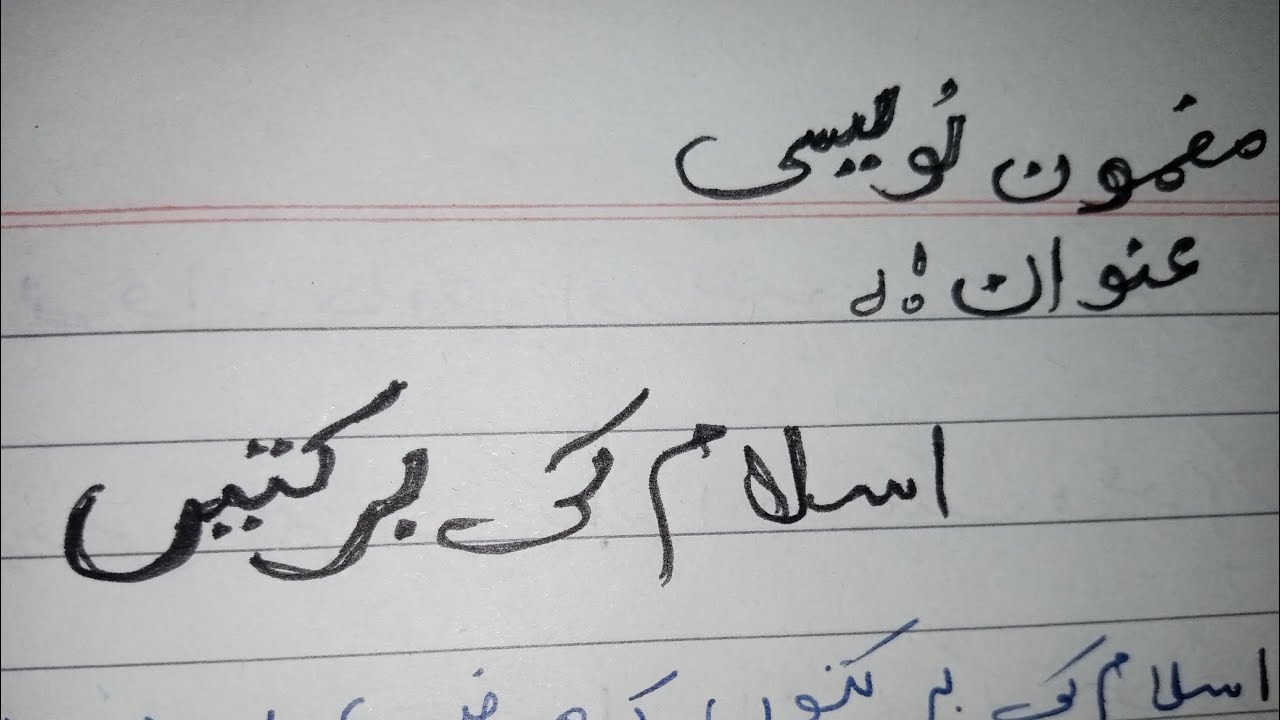 مضمون نُویسی
عنوان:
اسلام کی برکتیں
اسلام کی برکتوں